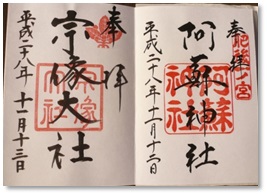 奉拝
肥後一ノ宮
阿蘇神社
平成二十八年十一月十二日
奉拝
宗像大社
平成二十八年十一月十三日